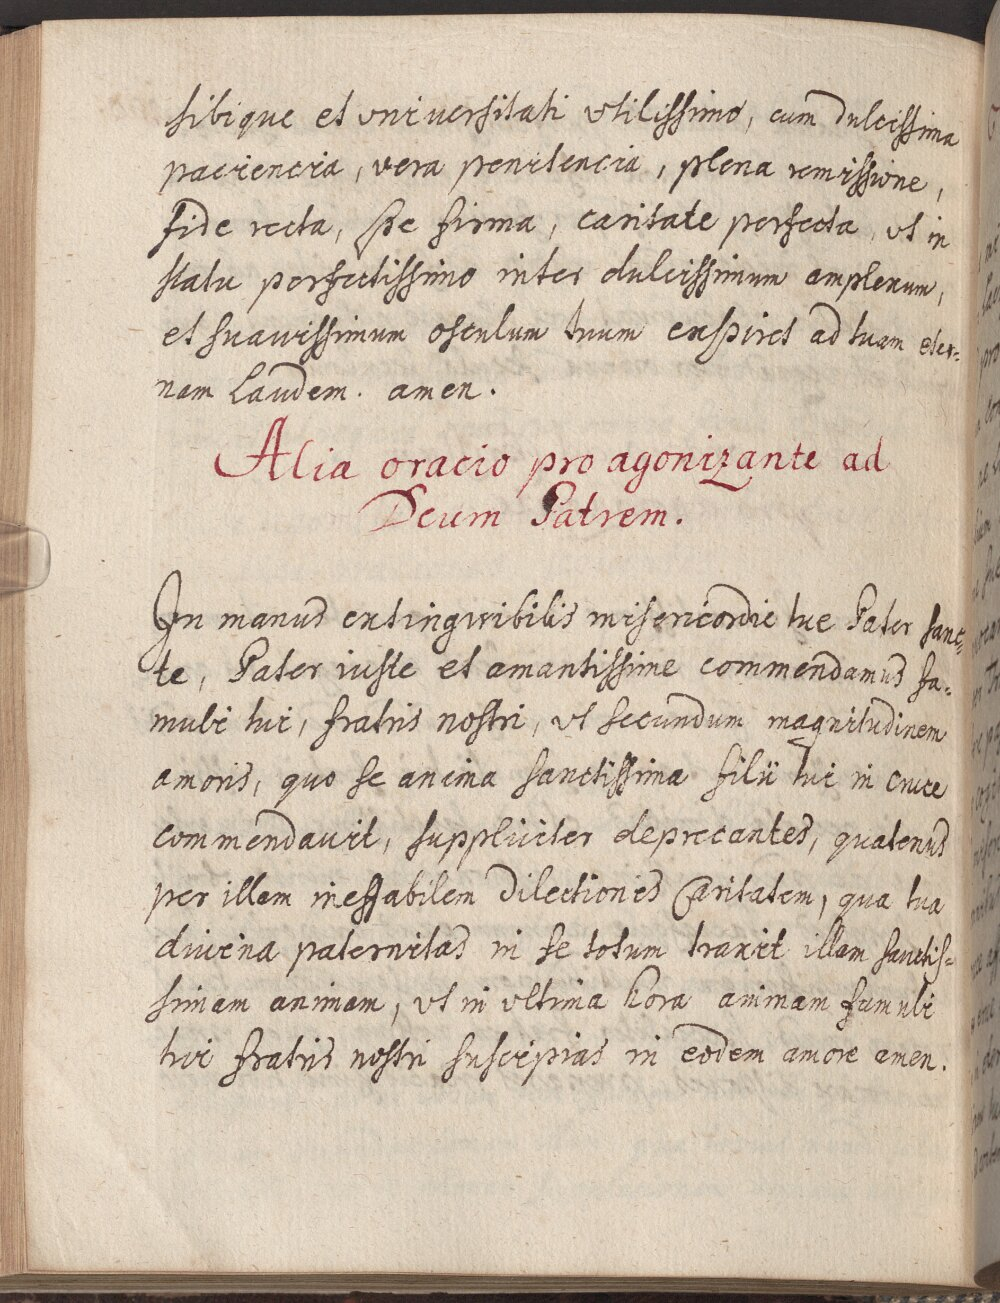 sibique et vniuersitati vtilissimo, cum dulcissima
paciencia, vera penitencia, plena remissione,
fide recta, spe firma, caritate perfecta, vt in
statu perfectissimo inter dulcissimum amplexum,
et suauissimum osculum tuum exspiret ad tuam eter-
nam laudem. amen.
Alia oracio pro agonizante ad
Deum Patrem.
In manus extingwibilis misericordie tue Pater sanc-
te, Pater iuste et amantissime commendamus fa-
muli tui, fratris nostri, vt secundum magnitudinem
amoris, quo se anima sanctissima filii tui in cruce
commendauit, suppliciter deprecantes, quatenus
per illam ineffabilem dilectionis caritatem, qua tua
diuina paternitas in se totum traxit illam sanctis-
simam animam, vt in vltima hora animam famuli
tui fratris nostri suscipias in eodem amore amen.